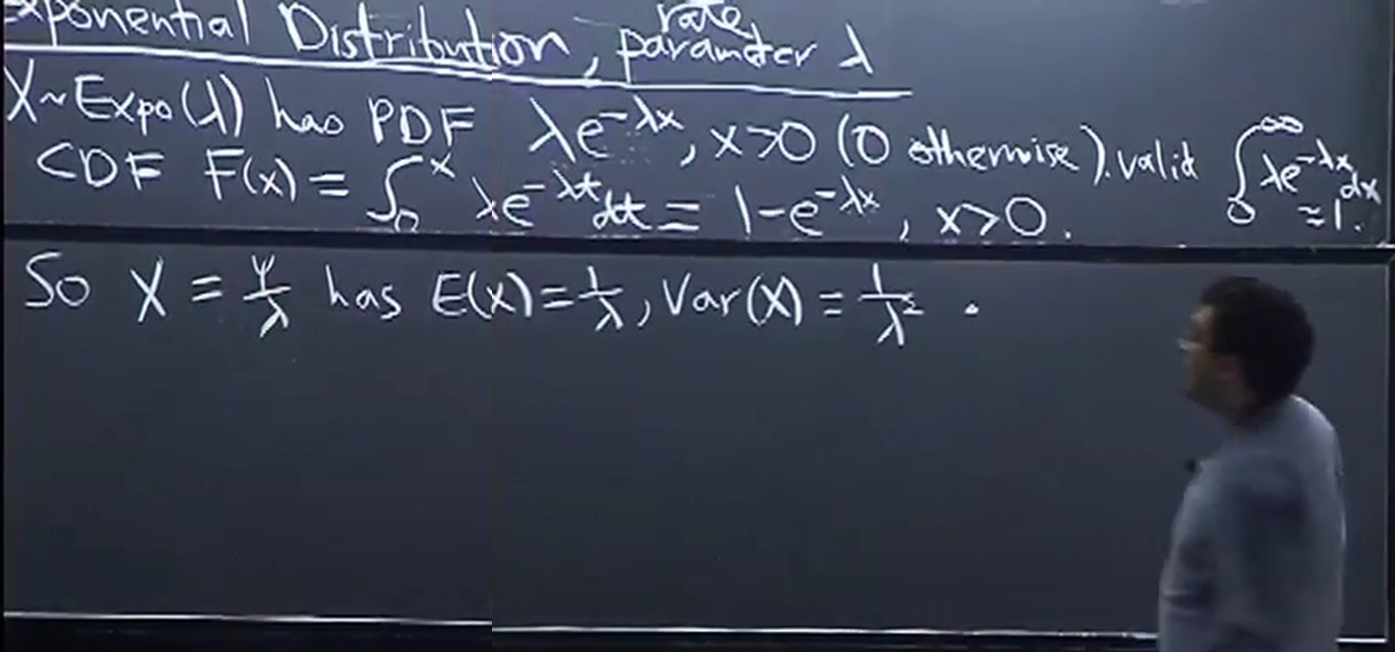 xponential Distribution, rate parameter λ
X~Expo(λ) has PDF λe^{-λx}, x>0 (0 otherwise). valid ∫_0^∞ λe^{-λx} dx = 1.
CDF F(x) = ∫_0^x λe^{-λt} dt = 1-e^{-λx}, x>0.
So X = Y/λ has E(X) = 1/λ, Var(X) = 1/λ² .